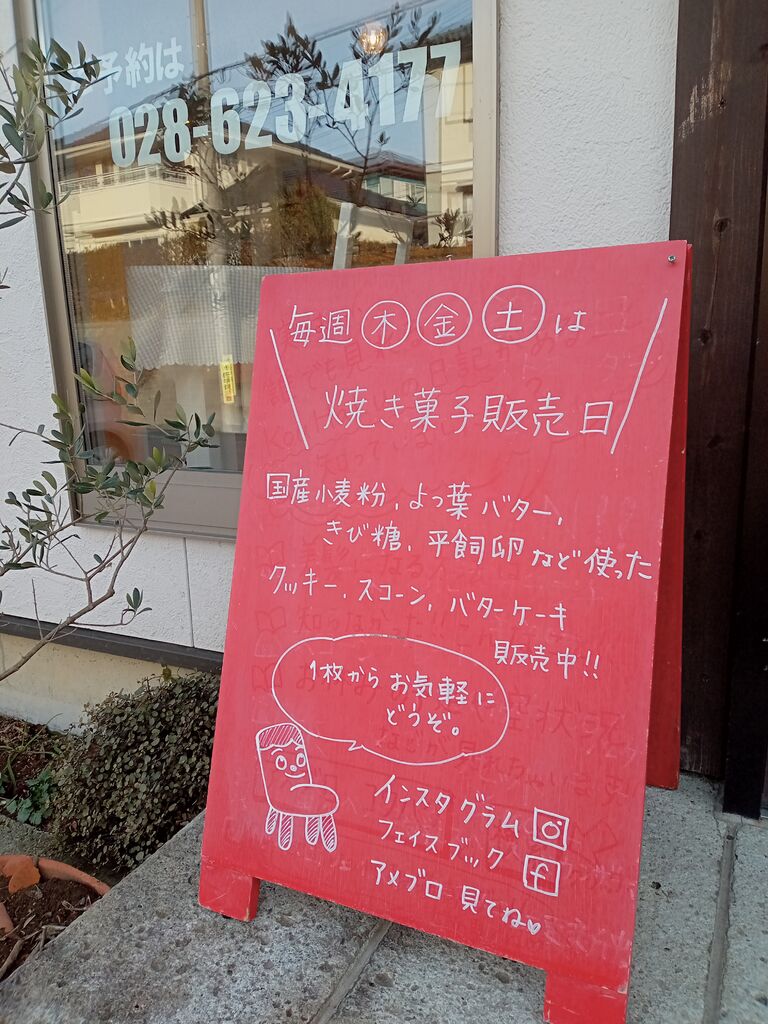 予約は
028-623-4177
毎週㊍㊎㊏は
焼き菓子販売日
国産小麦粉、よつ葉バター、
きび糖、平飼卵など使った
クッキー、スコーン、バターケーキ
販売中!!
1枚からお気軽に
どうぞ。
インスタグラム
フェイスブック f
アメブロ見てね♡